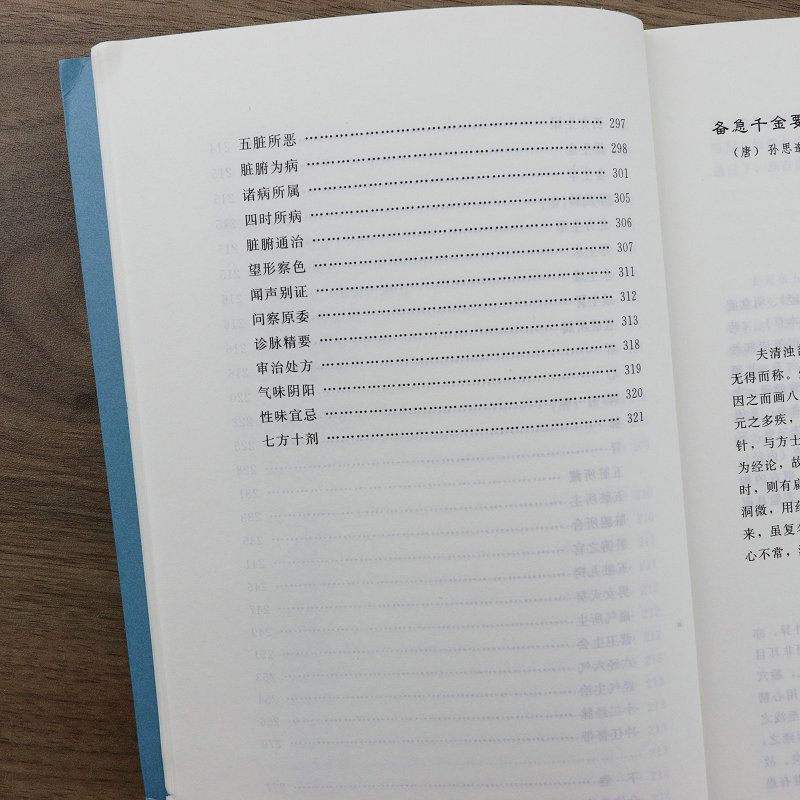 五脏所恶 …………………………………… 297
脏腑为病 …………………………………… 298
诸病所属 …………………………………… 301
四时所病 …………………………………… 305
脏腑通治 …………………………………… 306
望形察色 …………………………………… 307
闻声别证 …………………………………… 311
问察原委 …………………………………… 312
诊脉精要 …………………………………… 313
审治处方 …………………………………… 318
气味阴阳 …………………………………… 319
性味宜忌 …………………………………… 320
七方十剂 …………………………………… 321
备急千金要
（唐）孙思邈
夫清浊
无得而称。
因之而画八
元之多疾，
针，与方士
为经论，故
时，则有扁
洞微，用
来，虽复
心不常，